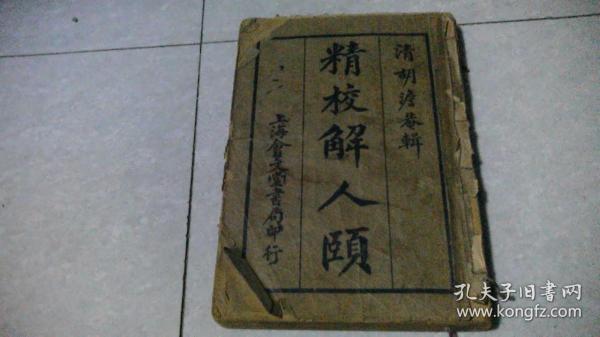 清胡澹菴輯
精校解人頤
上海會文堂書局印行
孔夫子旧书网
www.kongfz.com